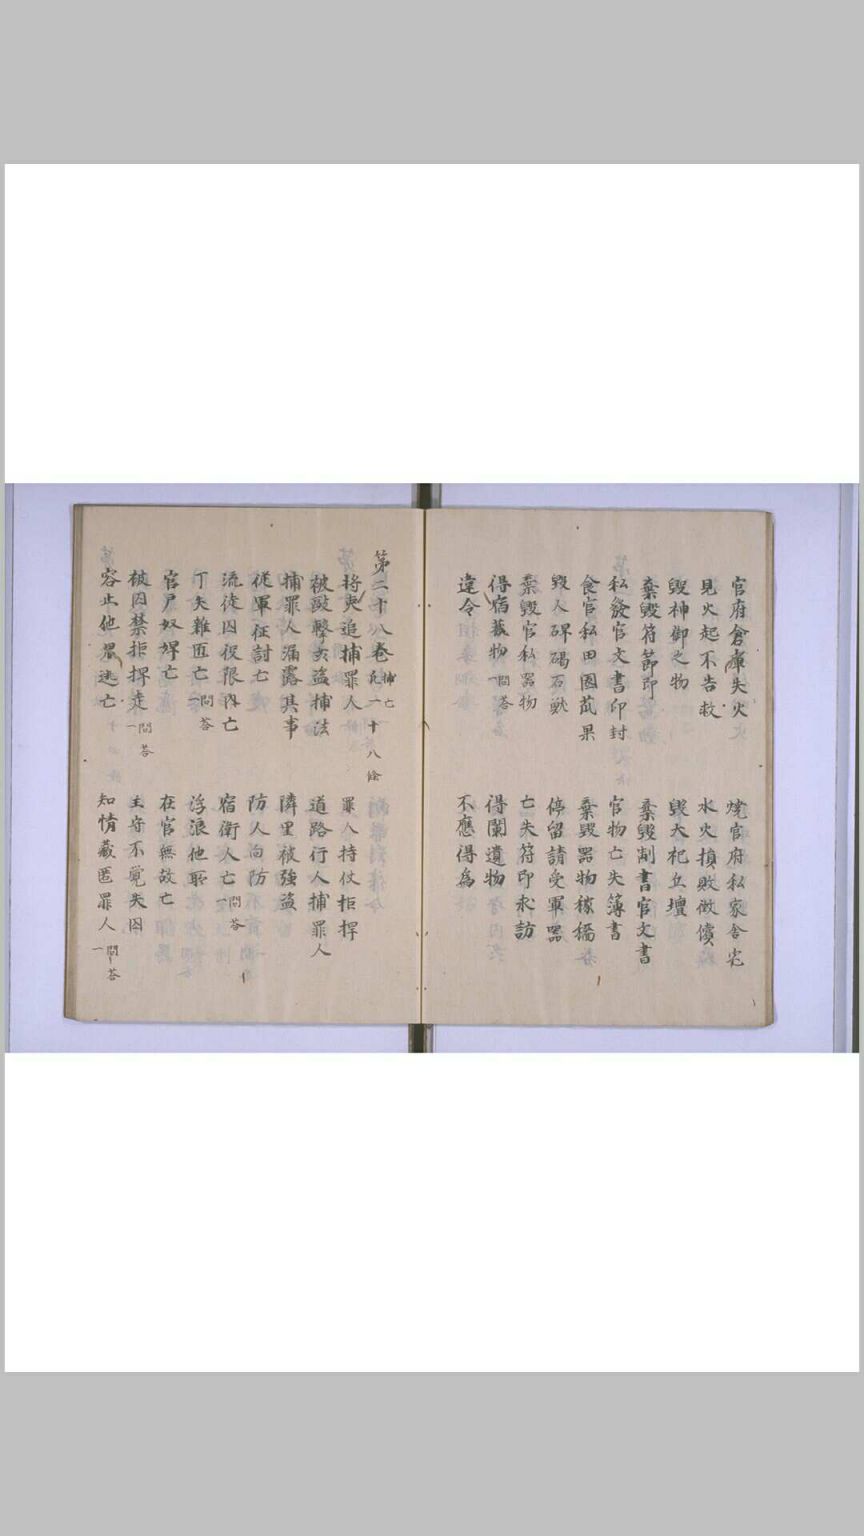 官府倉庫失火　燒官府私家舍宅
見火起不告救　水火損敗徴償
毀神御之物　毀大祀丘壇
棄毀符節印　棄毀制書官文書
私發官文書印封　官物亡失簿書
食官私田園苽果　棄毀器物稼穡
毀人碑碣石獸　停留請受軍器
棄毀官私器物　亡失符印求訪
得宿藏物一問答　得闌遺物
違令　不應得為
第二十八卷捕亡凡一十八條
将吏追捕罪人　罪人持仗拒捍
被毆擊姧盗捕法　道路行人捕罪人
捕罪人漏露其事　隣里被強盗
従軍征討亡　防人向防
流徒囚役限内亡　宿衛人亡一問答
丁夫雜匠亡一問答　浮浪他所
官戸奴婢亡　在官無故亡
被囚禁拒捍走一問答　主守不覺失囚
容止他界逃亡　知情藏匿罪人一問答